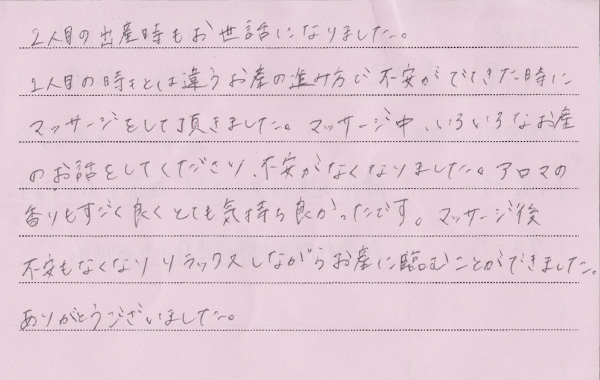 2人目の出産時もお世話になりました。
1人目の時とは違うお産の進み方で不安がでてきた時に
マッサージをして頂きました。マッサージ中、いろいろなお産
のお話をしてくださり、不安がなくなりました。アロマの
香りもすごく良くとても気持ち良かったです。マッサージ後
不安もなくなりリラックスしながらお産に臨むことができました。
ありがとうございました。